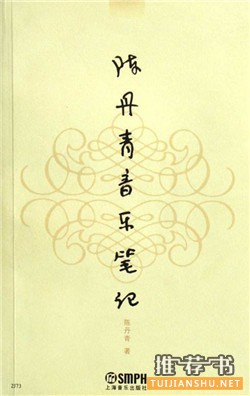 陈丹青音乐笔记
陈丹青 著
SMPH
上海音乐出版社
推荐书
TUIJIANSHU.NET